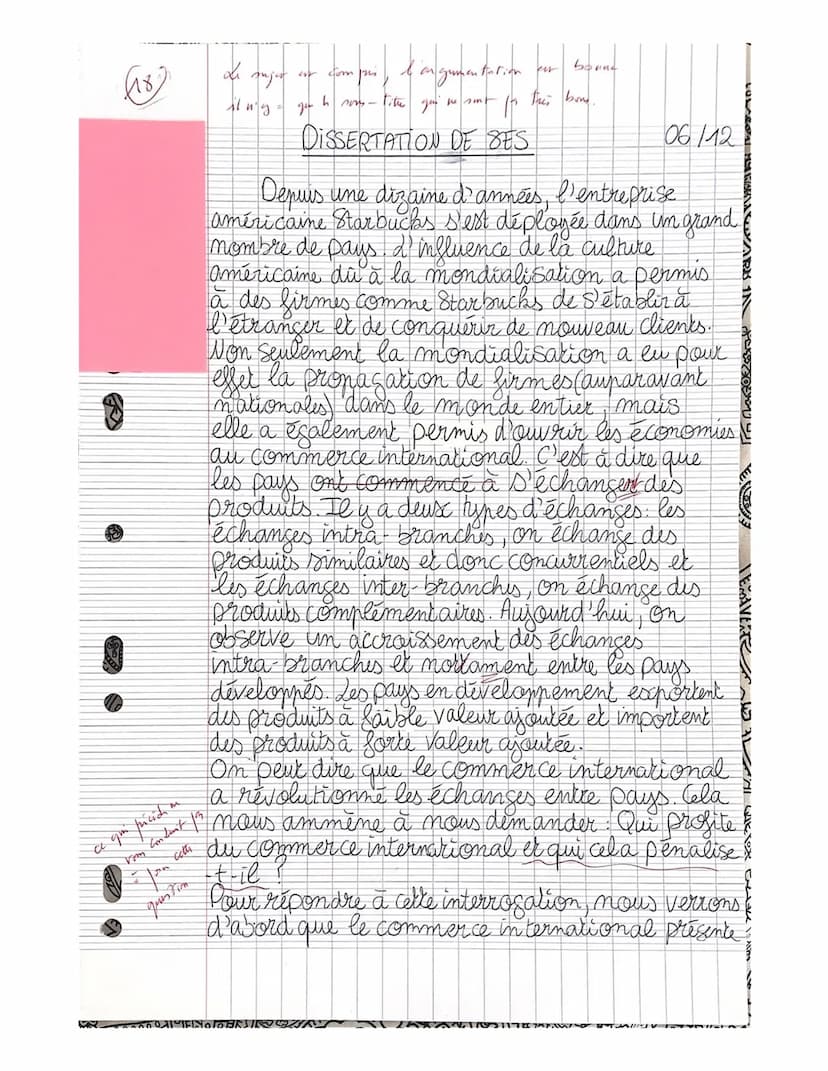 18
Le sujet est compris, l'argumentation est bonne
il n'y a que les sous-titres qui ne sont pas très bons.
DISSERTATION DE SES
06/12
Depuis une dizaine d'années, l'entreprise
américaine Starbucks s'est déployée dans un grand
nombre de pays. L'influence de la culture
américaine dû à la mondialisation a permis
à des firmes comme Starbucks de s'établir à
l'étranger et de conquérir de nouveau clients.
Non seulement la mondialisation a eu pour
effet la propagation de firmes (auparavant
nationales) dans le monde entier, mais
elle a également permis d'ouvrir les économies
au commerce international. C'est à dire que
les pays ont commencé à s'échangent des
produits. Il y a deux types d'échanges: les
échanges intra-branches, on échange des
produits similaires et donc concurrentiels et
les échanges inter-branches, on échange des
produits complémentaires. Aujourd'hui, on
observe un accroissement des échanges
intra-branches et notament entre les pays
développés. Les pays en développement exportent
des produits à faible valeur ajoutée et importent
des produits à forte valeur ajoutée.
On peut dire que le commerce international
a révolutionné les échanges entre pays. Cela
nous ammène à nous demander : Qui profite
du commerce international et qui cela pénalise
-t-il ?
ce qui précède ne
vous conduit pas
à poser cette
question
Pour répondre à cette interrogation, nous verrons
d'abord que le commerce international présente